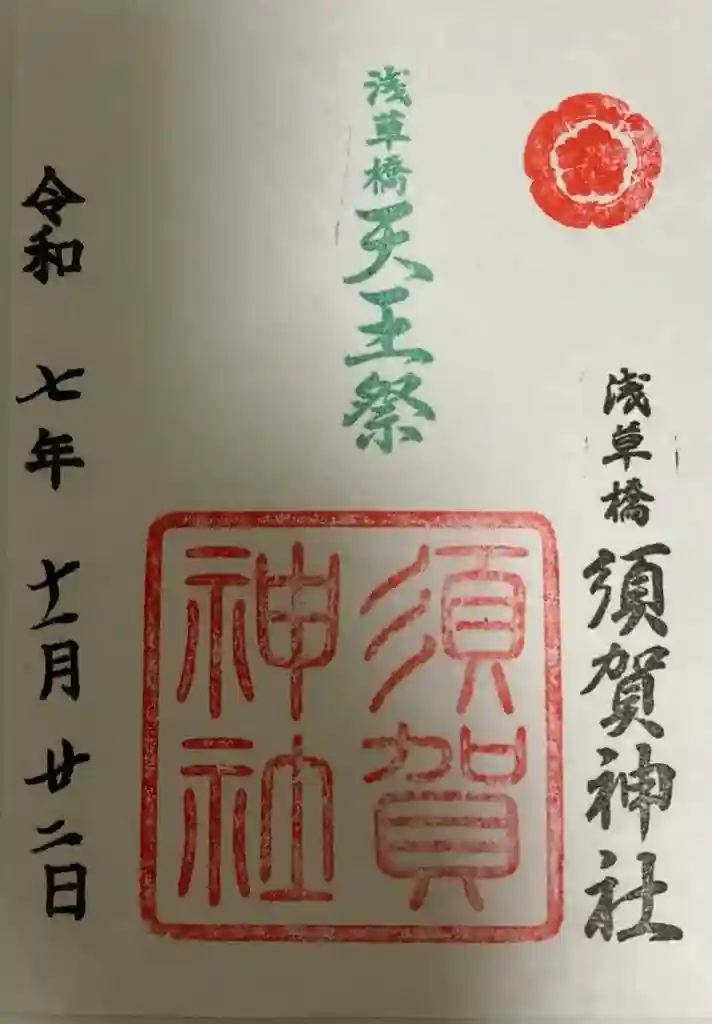 浅草橋 須賀神社
浅草橋 天王祭
須賀
神社
令和 七年 十一月 廿二日